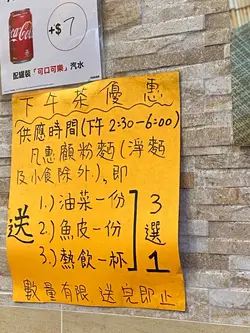 Coca-Cola
+$7
配罐裝「可口可樂」汽水
下午茶優惠
供應時間(下午2:30-6:00)
凡惠顧粉麵(淨麵
及小食除外),即
送
1.)油菜一份
2.)魚皮一份
3.)熱飲一杯
3
選
1
數量有限 送完即止